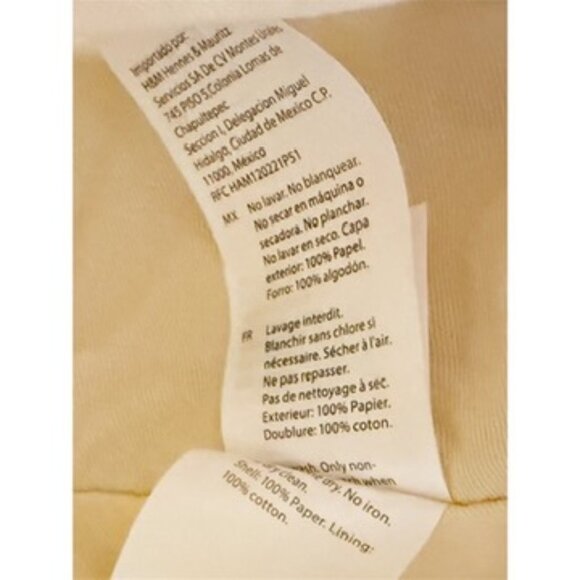 Importado por:
H&M Hennes & Mauritz
Servicios SA De CV Montes Urales
745 PISO 5,Colonia Lomas de
Chapultepec
Seccion I, Delegacion Miguel
Hidalgo, Ciudad de Mexico C.P.
11000, México
RFC HAM120221PS1
MX No lavar. No blanquear.
No secar en máquina o
secadora. No planchar.
No lavar en seco. Capa
exterior: 100% Papel.
Forro: 100% algodón.
FR Lavage interdit.
Blanchir sans chlore si
nécessaire. Sécher à l'air.
Ne pas repasser.
Pas de nettoyage à sec.
Exterieur: 100% Papier.
Doublure: 100% coton.
Only non-
when
dry. No iron.
dry clean.
Shell: 100% Paper. Lining:
100% cotton.